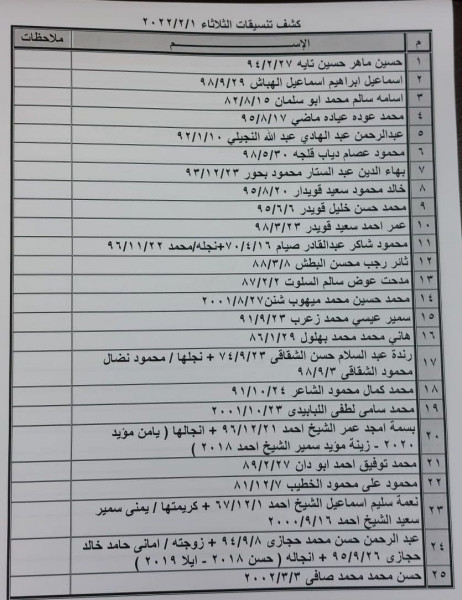 كشف تنسيقات الثلاثاء ٢٠٢٢/٢/١
م الإســـم ملاحظات
١ حسين ماهر حسين تايه ٩٤/٢/٢٧
٢ اسماعيل ابراهيم اسماعيل الهباش ٩٨/٩/٢٩
٣ اسامه سالم محمد ابو سلمان ٨٢/٨/١٥
٤ محمد عوده عياده ماضي ٩٥/٨/١٧
٥ عبدالرحمن عبد الهادي عبد الله النجيلي ٩٢/١/١٠
٦ محمود عصام دياب قلجه ٩٨/٥/٣٠
٧ بهاء الدين عبد الستار محمود بحور ٩٣/١٢/٢٣
٨ خالد محمود سعيد قويدار ٩٥/٨/٢٠
٩ محمد حسن خليل قويدر ٩٥/٦/٦
١٠ عمر احمد سعيد قويدر ٩٨/٣/٢٣
١١ محمود شاكر عبدالقادر صيام ٧٠/٤/١٦+نجله/محمد ٩٦/١١/٢٢
١٢ ثائر رجب محسن البطش ٨٨/٣/٨
١٣ مدحت عوض سالم السلوت ٨٧/٢/٢
١٤ محمد حسين محمد ميهوب شنن ٢٠٠١/٨/٢٧
١٥ سمير عيسي محمد زعرب ٩١/٩/٢٣
١٦ هاني محمد محمد بهلول ٨٦/١/٢٩
١٧ رندة عبد السلام حسن الشقاقى ٧٤/٩/٢٣ + نجلها / محمود نضال
محمود الشقاقى ٩٨/٩/٣
١٨ محمد كمال محمود الشاعر ٩١/١٠/٢٤
١٩ محمد سامى لطفى اللبابيدى ٢٠٠١/١٠/٢٣
٢٠ بسمة امجد عمر الشيخ احمد ٩٦/١٢/٢١ + انجالها ( يامن مؤيد
٢٠٢٠ - زينة مؤيد سمير الشيخ احمد ٢٠١٨ )
٢١ محمد توفيق احمد ابو دان ٨٩/٢/٢٧
٢٢ محمود على محمود الخطيب ٨١/١٢/٧
٢٣ نعمة سليم اسماعيل الشيخ احمد ٦٧/١٢/١ + كريمتها / يمنى سمير
سعيد الشيخ احمد ٢٠٠٠/٩/١٦
٢٤ عبد الرحمن حسن محمد حجازى ٩٤/٩/٨ + زوجته / امانى حامد خالد
حجازى ٩٥/٩/٢٦ + انجاله ( حسن ٢٠١٨ - ايلا ٢٠١٩ )
٢٥ حسن محمد محمد صافى ٢٠٠٢/٣/٣